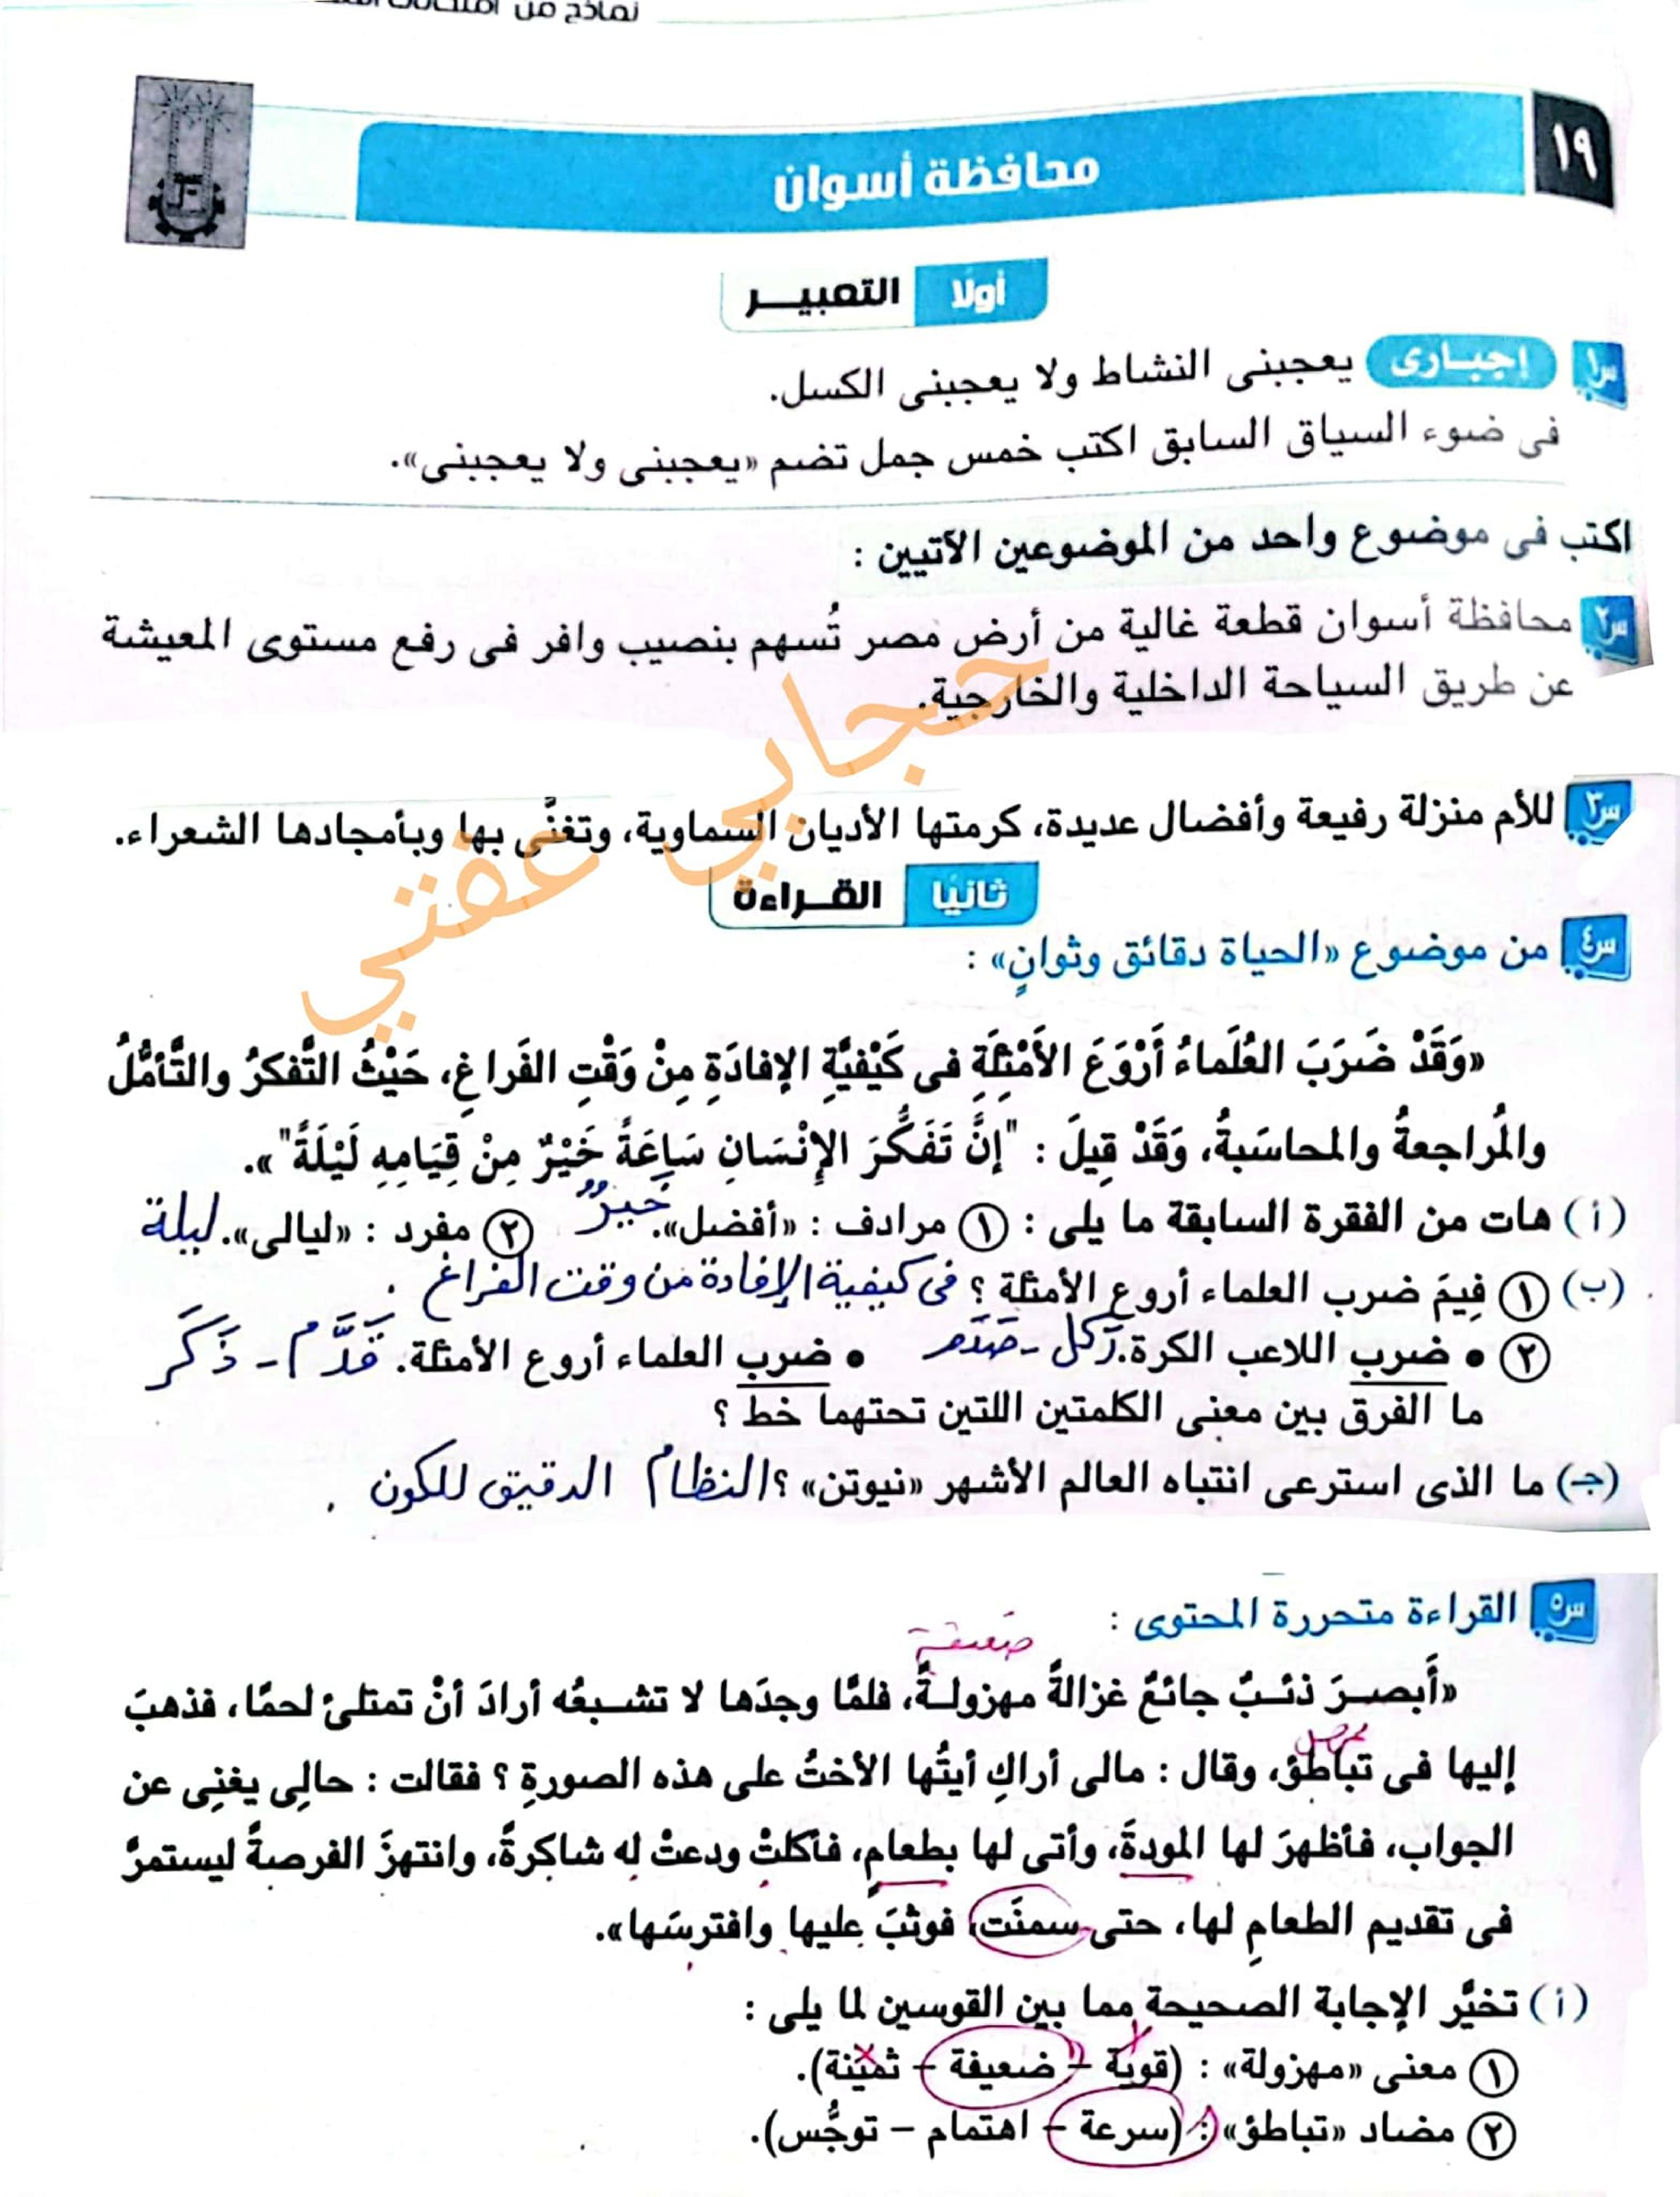 نماذج من
١٩
محافظة أسوان
أولًا التعبيـــر
س١ إجبـارى يعجبنى النشاط ولا يعجبنى الكسل.
فى ضوء السياق السابق اكتب خمس جمل تضم «يعجبنى ولا يعجبنى».
اكتب فى موضوع واحد من الموضوعين الآتيين :
س٢ محافظة أسوان قطعة غالية من أرض مصر تُسهم بنصيب وافر فى رفع مستوى المعيشة
عن طريق السياحة الداخلية والخارجية.
س٣ للأم منزلة رفيعة وأفضال عديدة، كرمتها الأديان السماوية، وتغنَّى بها وبأمجادها الشعراء.
حجابي عفتي
ثانيًا القـــراءة
س٤ من موضوع «الحياة دقائق وثوانٍ» :
«وَقَدْ ضَرَبَ العُلَماءُ أَرْوَعَ الأَمْثِلَةِ فى كَيْفيَّةِ الإفادَةِ مِنْ وَقْتِ الفَراغِ، حَيْثُ التَّفكرُ والتَّأمُّلُ
والمُراجعةُ والمحاسَبةُ، وَقَدْ قِيلَ : "إنَّ تَفَكُّرَ الإنْسَانِ سَاعَةً خَيْرٌ مِنْ قِيَامِهِ لَيْلَةً"».
(أ) هات من الفقرة السابقة ما يلى : ① مرادف : «أفضل». خيرٌ ② مفرد : «ليالى». ليلة
(ب) ① فِيمَ ضرب العلماء أروع الأمثلة ؟ فى كيفية الإفادة من وقت الفراغ .
② • ضرب اللاعب الكرة. ركل - صدم • ضرب العلماء أروع الأمثلة. قَدَّم - ذَكَر
ما الفرق بين معنى الكلمتين اللتين تحتهما خط ؟
(جـ) ما الذى استرعى انتباه العالم الأشهر «نيوتن» ؟ النظام الدقيق للكون .
س٥ القراءة متحررة المحتوى :
ضعيفة
«أَبصـرَ ذئـبٌ جائعٌ غزالةً مهزولـةً، فلمَّا وجدَها لا تشـبعُه أرادَ أنْ تمتلئَ لحمًا، فذهبَ
تمهل
إليها فى تباطؤ، وقال : مالى أراكِ أيتُها الأختُ على هذه الصورةِ ؟ فقالت : حالِى يغنِى عن
الجواب، فأظهرَ لها المودةَ، وأتى لها بطعامٍ، فأكلتْ ودعتْ له شاكرةً، وانتهزَ الفرصةَ ليستمرَّ
فى تقديم الطعامِ لها، حتى سمنَت، فوثبَ عليها وافترسَها».
(أ) تخيَّر الإجابة الصحيحة مما بين القوسين لما يلى :
① معنى «مهزولة» : (قوية – ضعيفة – ثمينة).
② مضاد «تباطؤ» : (سرعة – اهتمام – توجُّس).